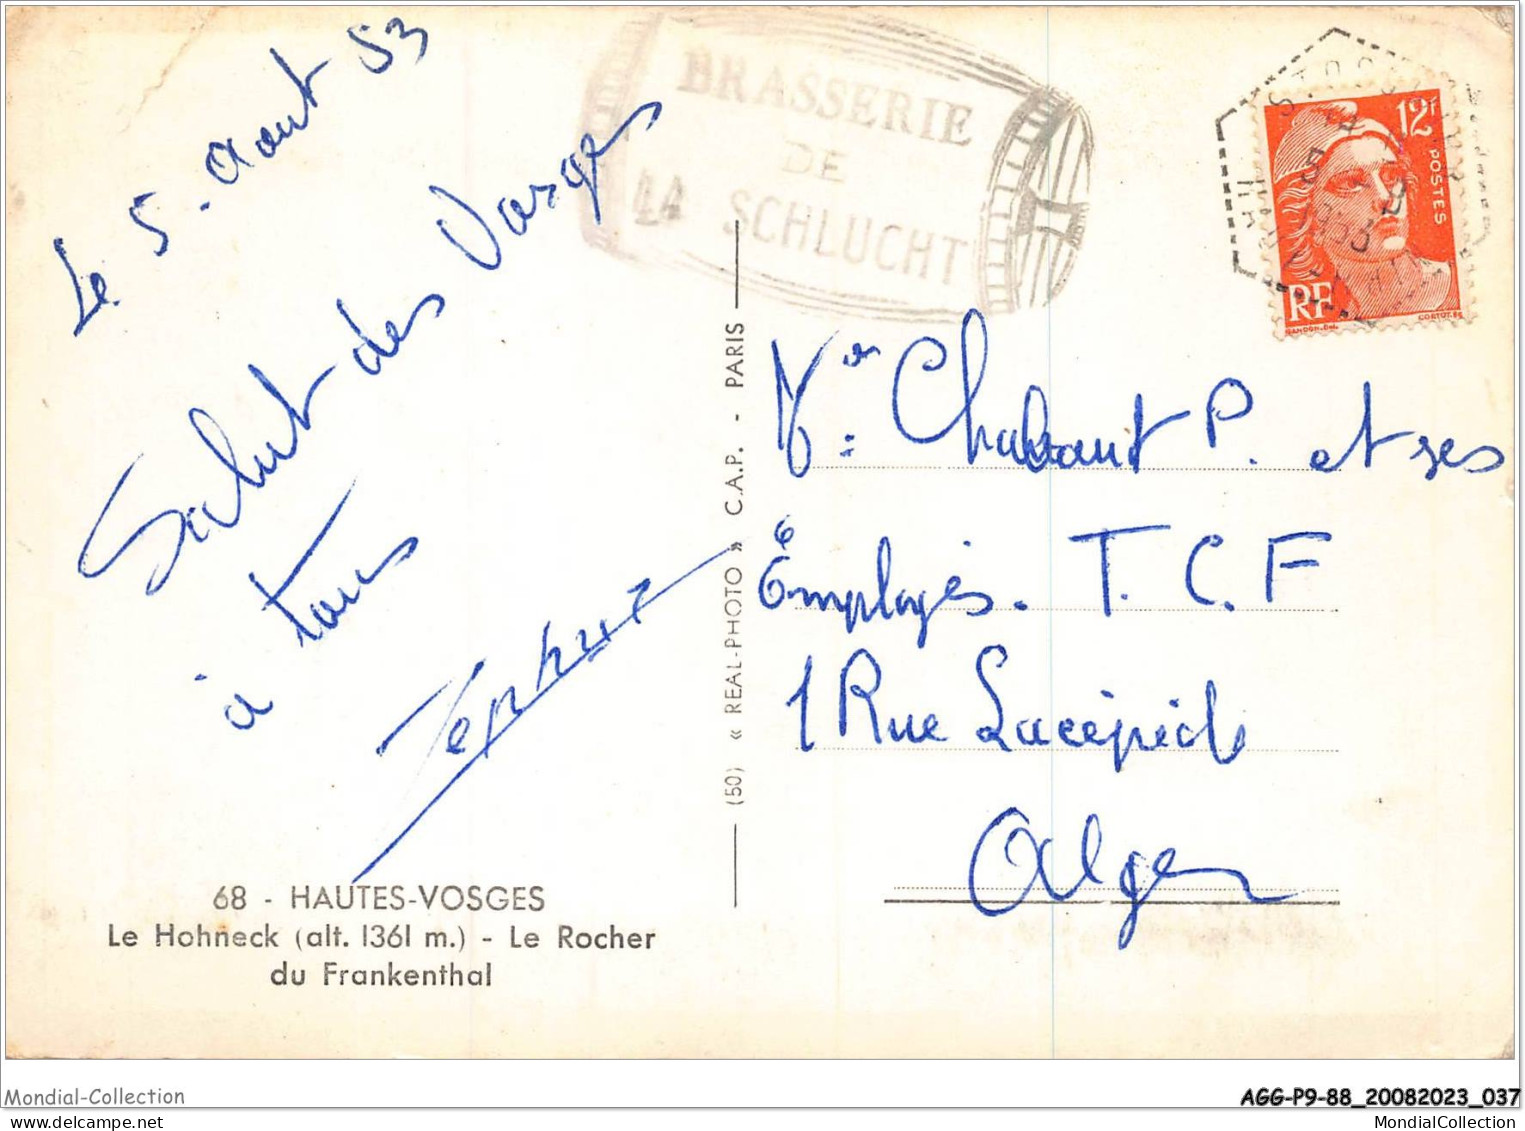 Le 5. Aout 53
Salut des Vosges
à tous
BRASSERIE
DE
LA SCHLUCHT
12F
POSTES
RF
GANDON.DEL.
CORTOT.SC
Chabaut P. et ses
Employés. T. C. F
1 Rue Lacépède
Alger
(50) « REAL-PHOTO » C.A.P. - PARIS
68 - HAUTES-VOSGES
Le Hohneck (alt. 1361 m.) - Le Rocher
du Frankenthal
Mondial-Collection
AGG-P9-88_20082023_037
MondialCollection